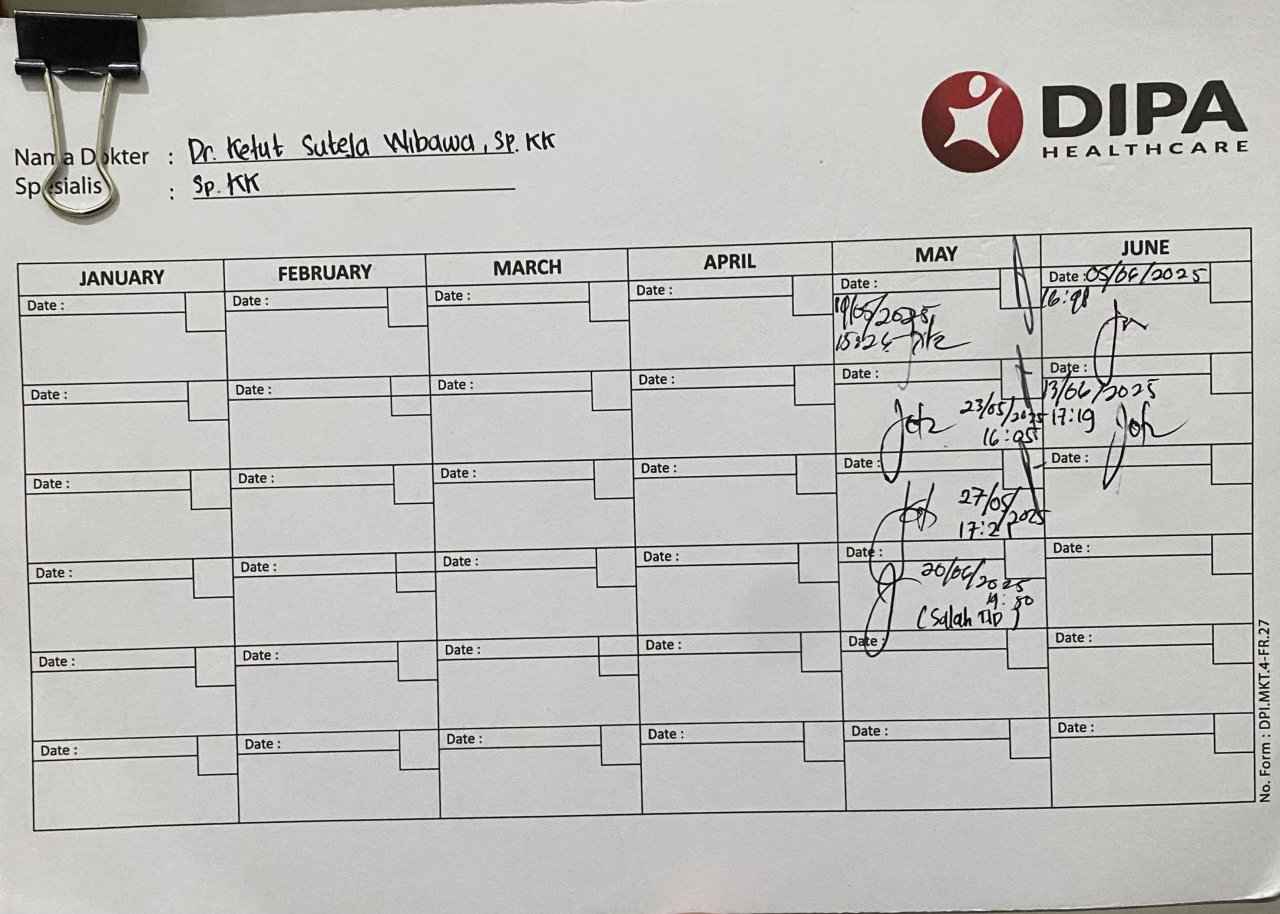 DIPA
HEALTHCARE
Nama Dokter : Dr. Ketut Suteja Wibawa, Sp. KK
Spesialis : Sp. KK
JANUARY FEBRUARY MARCH APRIL MAY JUNE
Date : Date : Date : Date : Date : Date : 05/06/2025
19/05/2025 16:
15:24
Date : Date : Date : Date : Date : Date :
23/05/2025 13/06/2025
16:05 17:19
Date : Date : Date : Date : Date : Date :
27/05/2025
17:21
Date : Date : Date : Date : Date : Date :
20/06/2025
(Salah TTD)
Date : Date : Date : Date : Date : Date :
Date : Date : Date : Date : Date : Date :
No. Form : DPI.MKT.4-FR.27